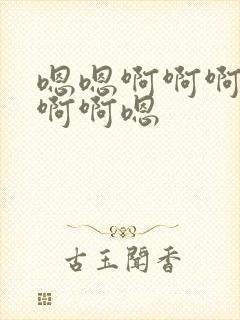 嗯嗯啊啊啊
啊啊嗯
古玉闻香